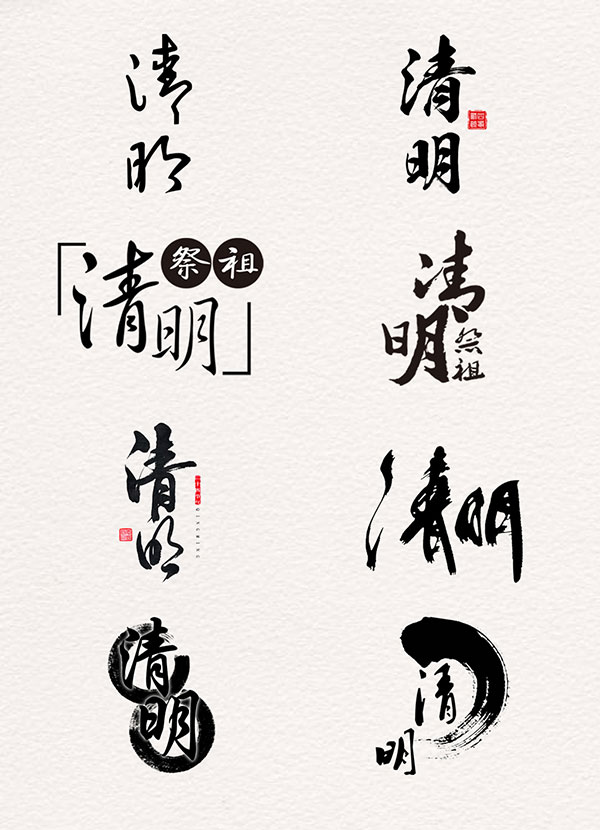 清明
清明
祭祖
清明
清明
祭祖
清明
QINGMING
清明
清明
清明